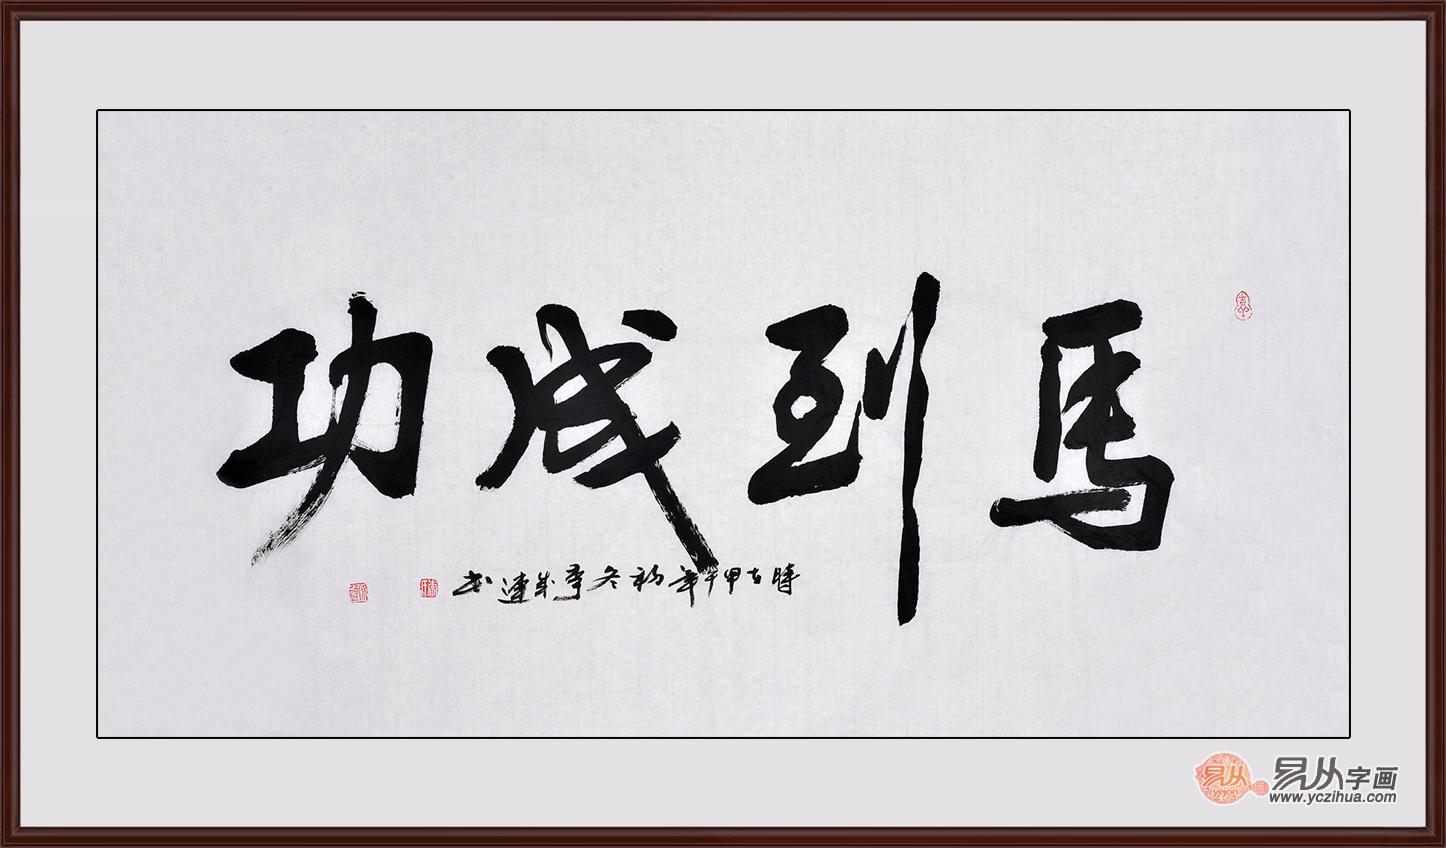 馬到成功
時在甲午年初冬李成連書
易从
易从字画
www.yczihua.com